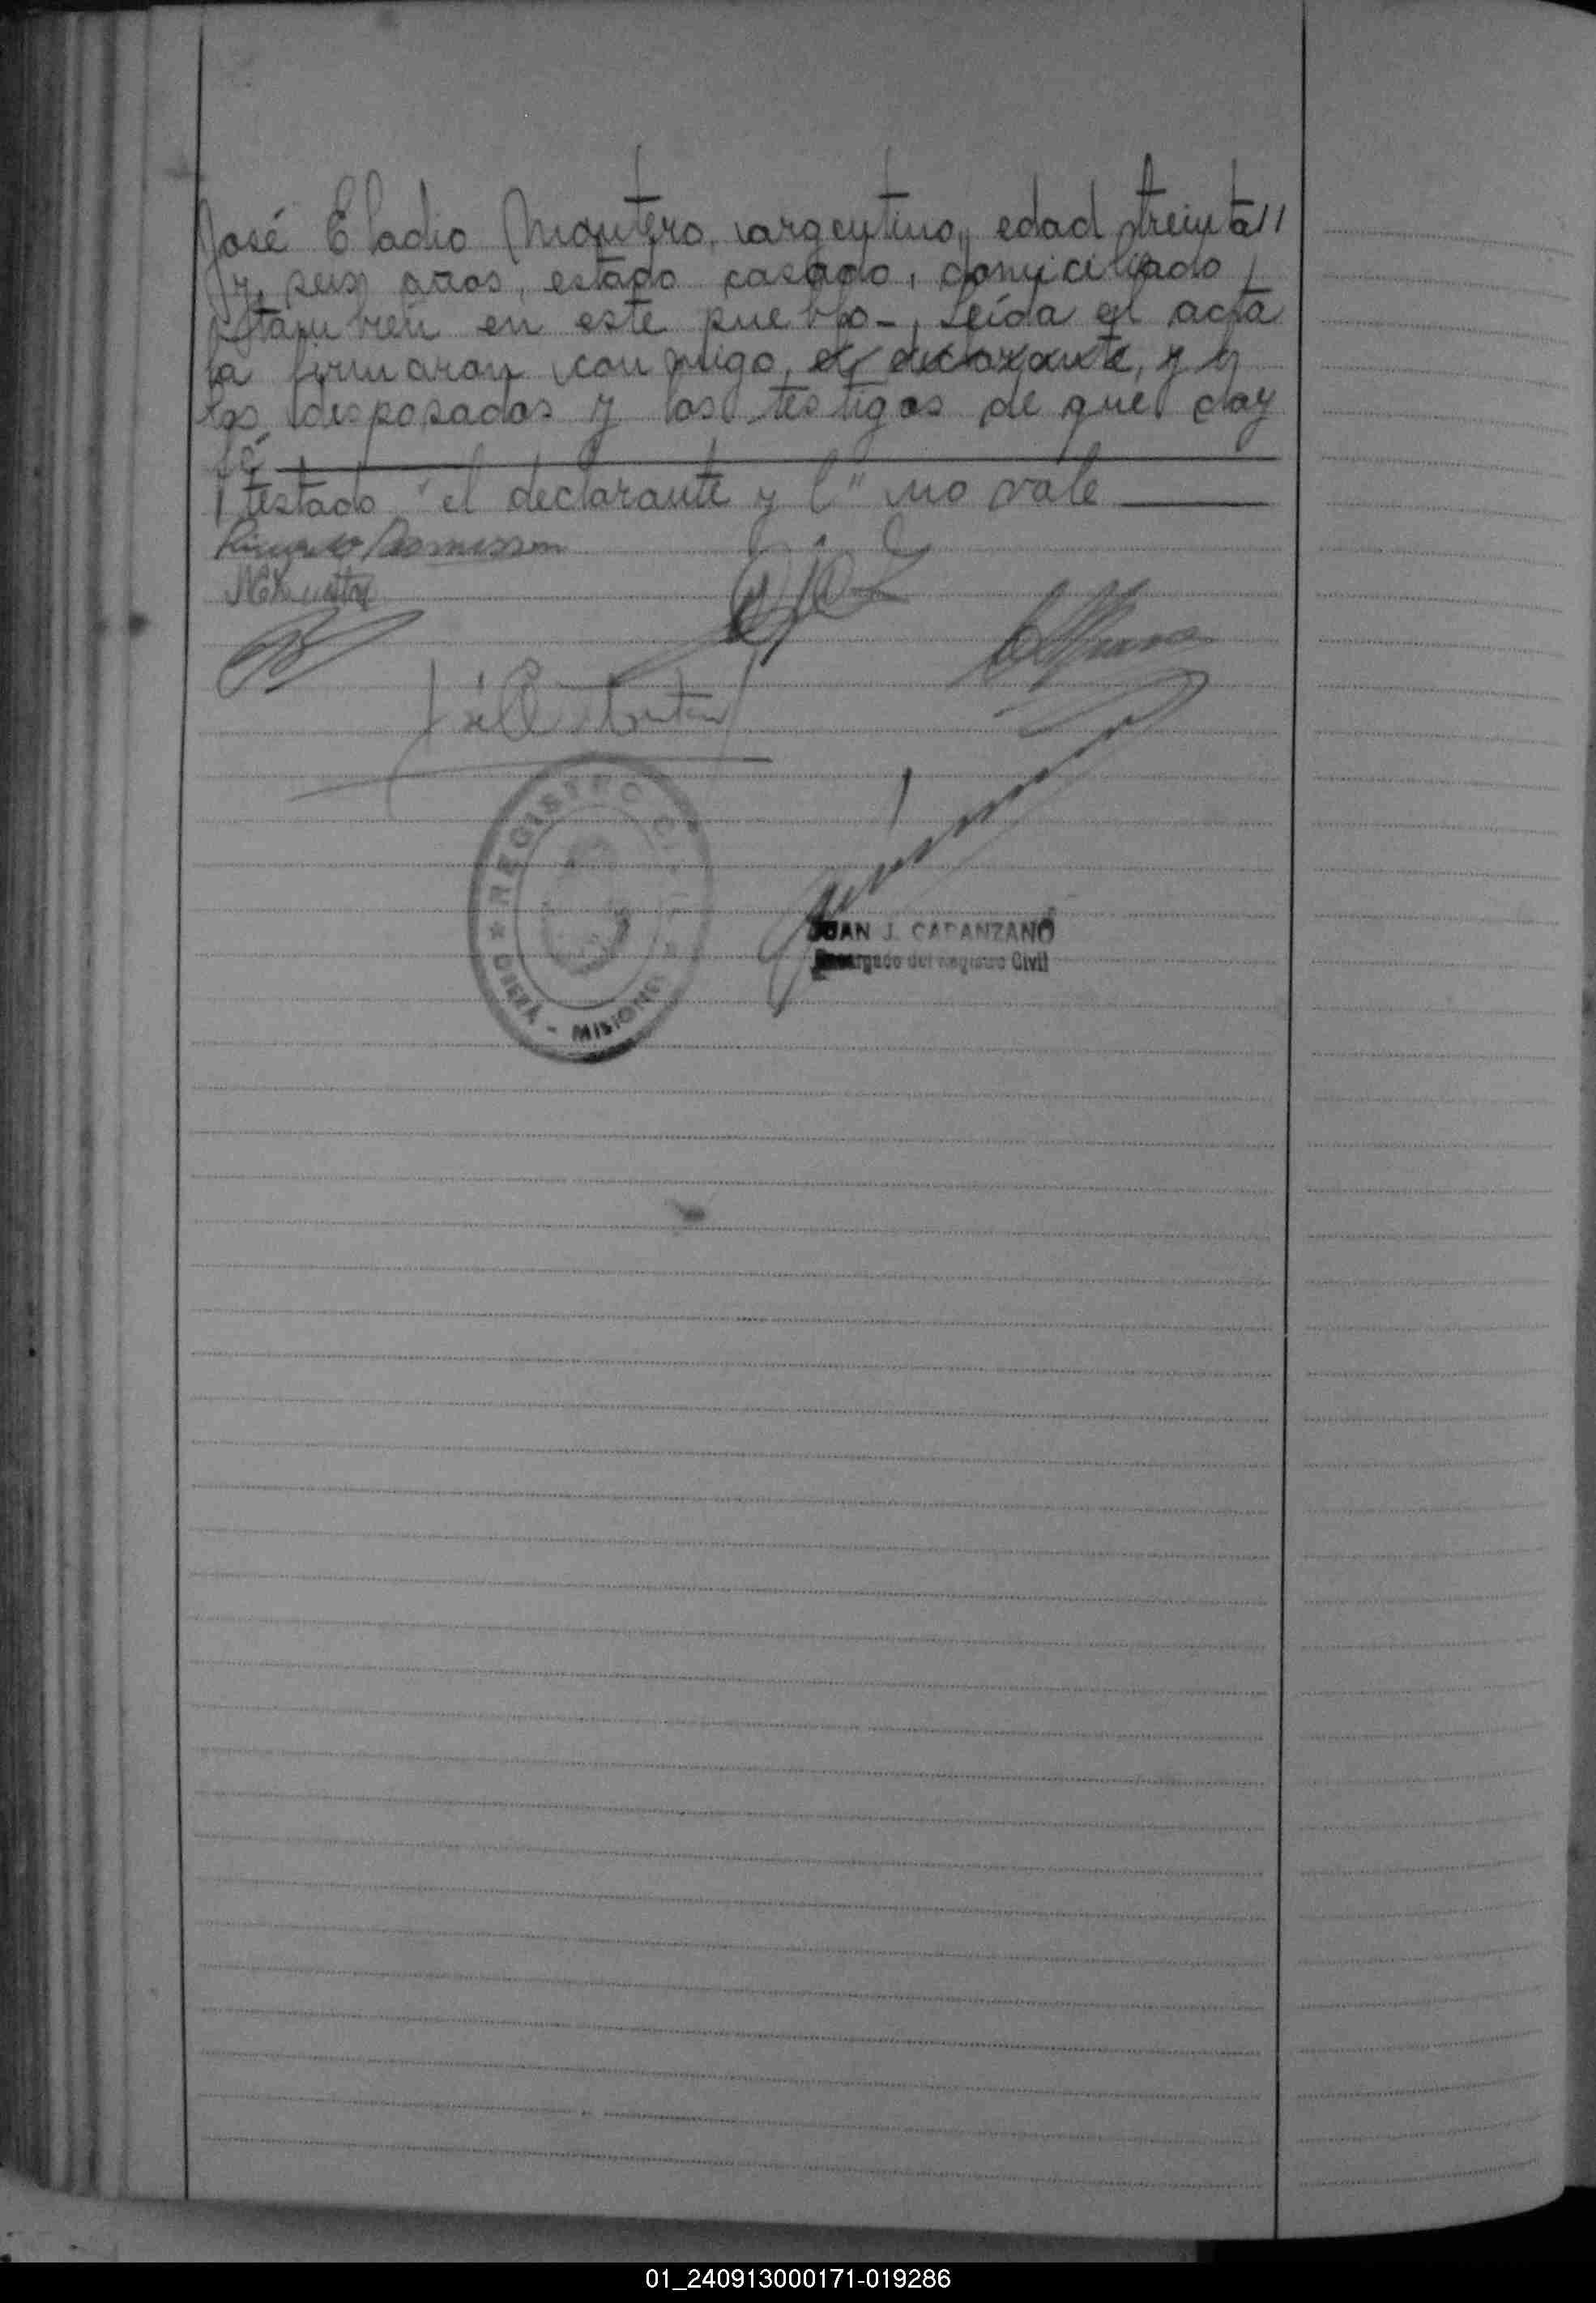 José Eladio Montero, argentino, edad treinta //
y seis años, estado casado, domiciliado
también en este pueblo-, Leída el acta
la firmaron conmigo, el declarante, y l
los desposados y los testigos de que doy
fé
testado "el declarante y l" no vale
REGISTRO CIVIL
OBERÁ - MISIONES
JUAN J. CAPANZANO
Encargado del Registro Civil
01_240913000171-019286